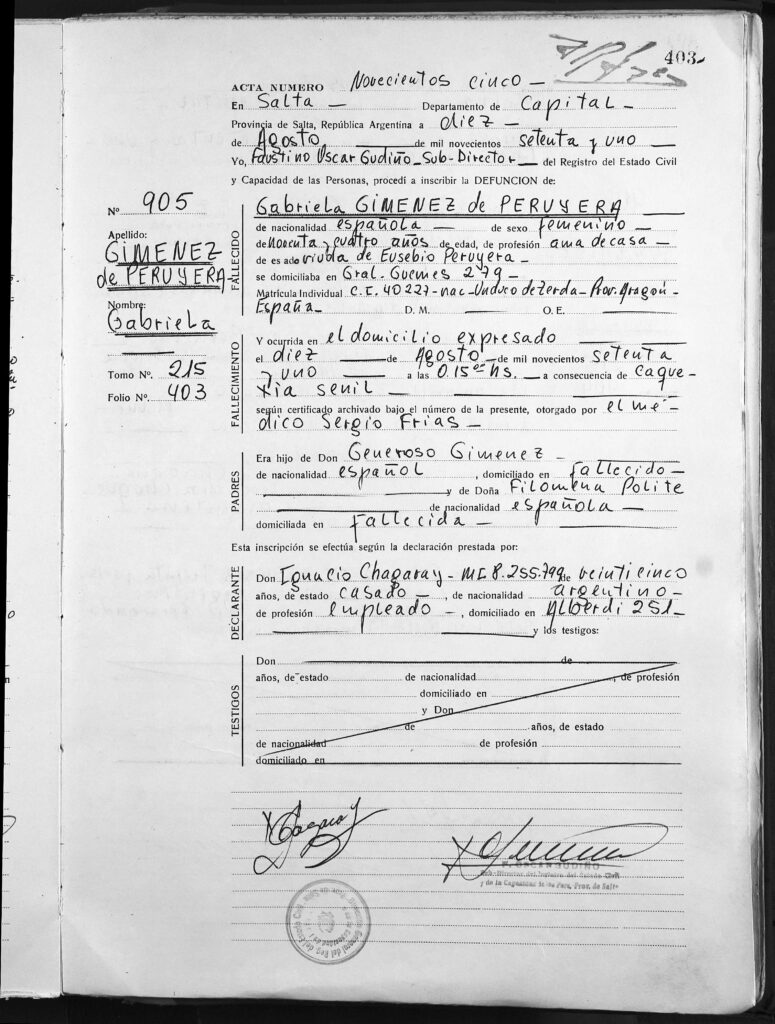 403-
ACTA NUMERO Novecientos cinco —
En Salta — Departamento de Capital —
Provincia de Salta, República Argentina a diez —
de Agosto — de mil novecientos setenta y uno —
Yo, Faustino Oscar Gudiño - Sub-Director — del Registro del Estado Civil
y Capacidad de las Personas, procedí a inscribir la DEFUNCION de:
Nº 905
Apellido:
GIMENEZ
de PERUYERA
Nombre:
Gabriela
Tomo Nº. 215
Folio Nº. 403
FALLECIDO
Gabriela GIMENEZ de PERUYERA
de nacionalidad española — de sexo femenino —
de noventa y cuatro años de edad, de profesión ama de casa —
de es ado viuda de Eusebio Peruyera —
se domiciliaba en Gral. Guemes 279 —
Matrícula Individual C.I. 40227 - nac. de Zerda - Prov. Aragón -
España — D. M. — O. E. —
FALLECIMIENTO
Y ocurrida en el domicilio expresado
el diez — de Agosto — de mil novecientos setenta
y uno — a las 0.15 hs. — a consecuencia de caque-
xia senil —
según certificado archivado bajo el número de la presente, otorgado por el mé-
dico Sergio Frias —
PADRES
Era hijo de Don Generoso Gimenez —
de nacionalidad español , domiciliado en fallecido —
y de Doña Filomena Polite
de nacionalidad española —
domiciliada en fallecida —
Esta inscripción se efectúa según la declaración prestada por:
DECLARANTE
Don Ignacio Chagaray - MI 8.255.799 de veinticinco
años, de estado casado — , de nacionalidad argentino —
de profesión empleado — , domiciliado en Alberdi 251 —
y los testigos:
TESTIGOS
Don de
años, de estado de nacionalidad , de profesión
domiciliado en
y Don
de años, de estado
de nacionalidad de profesión
domiciliado en
F. OSCAR GUDIÑO
Sub-Director del Registro del Estado Civil
y de la Capacidad de las Pers. Prov. de Salta